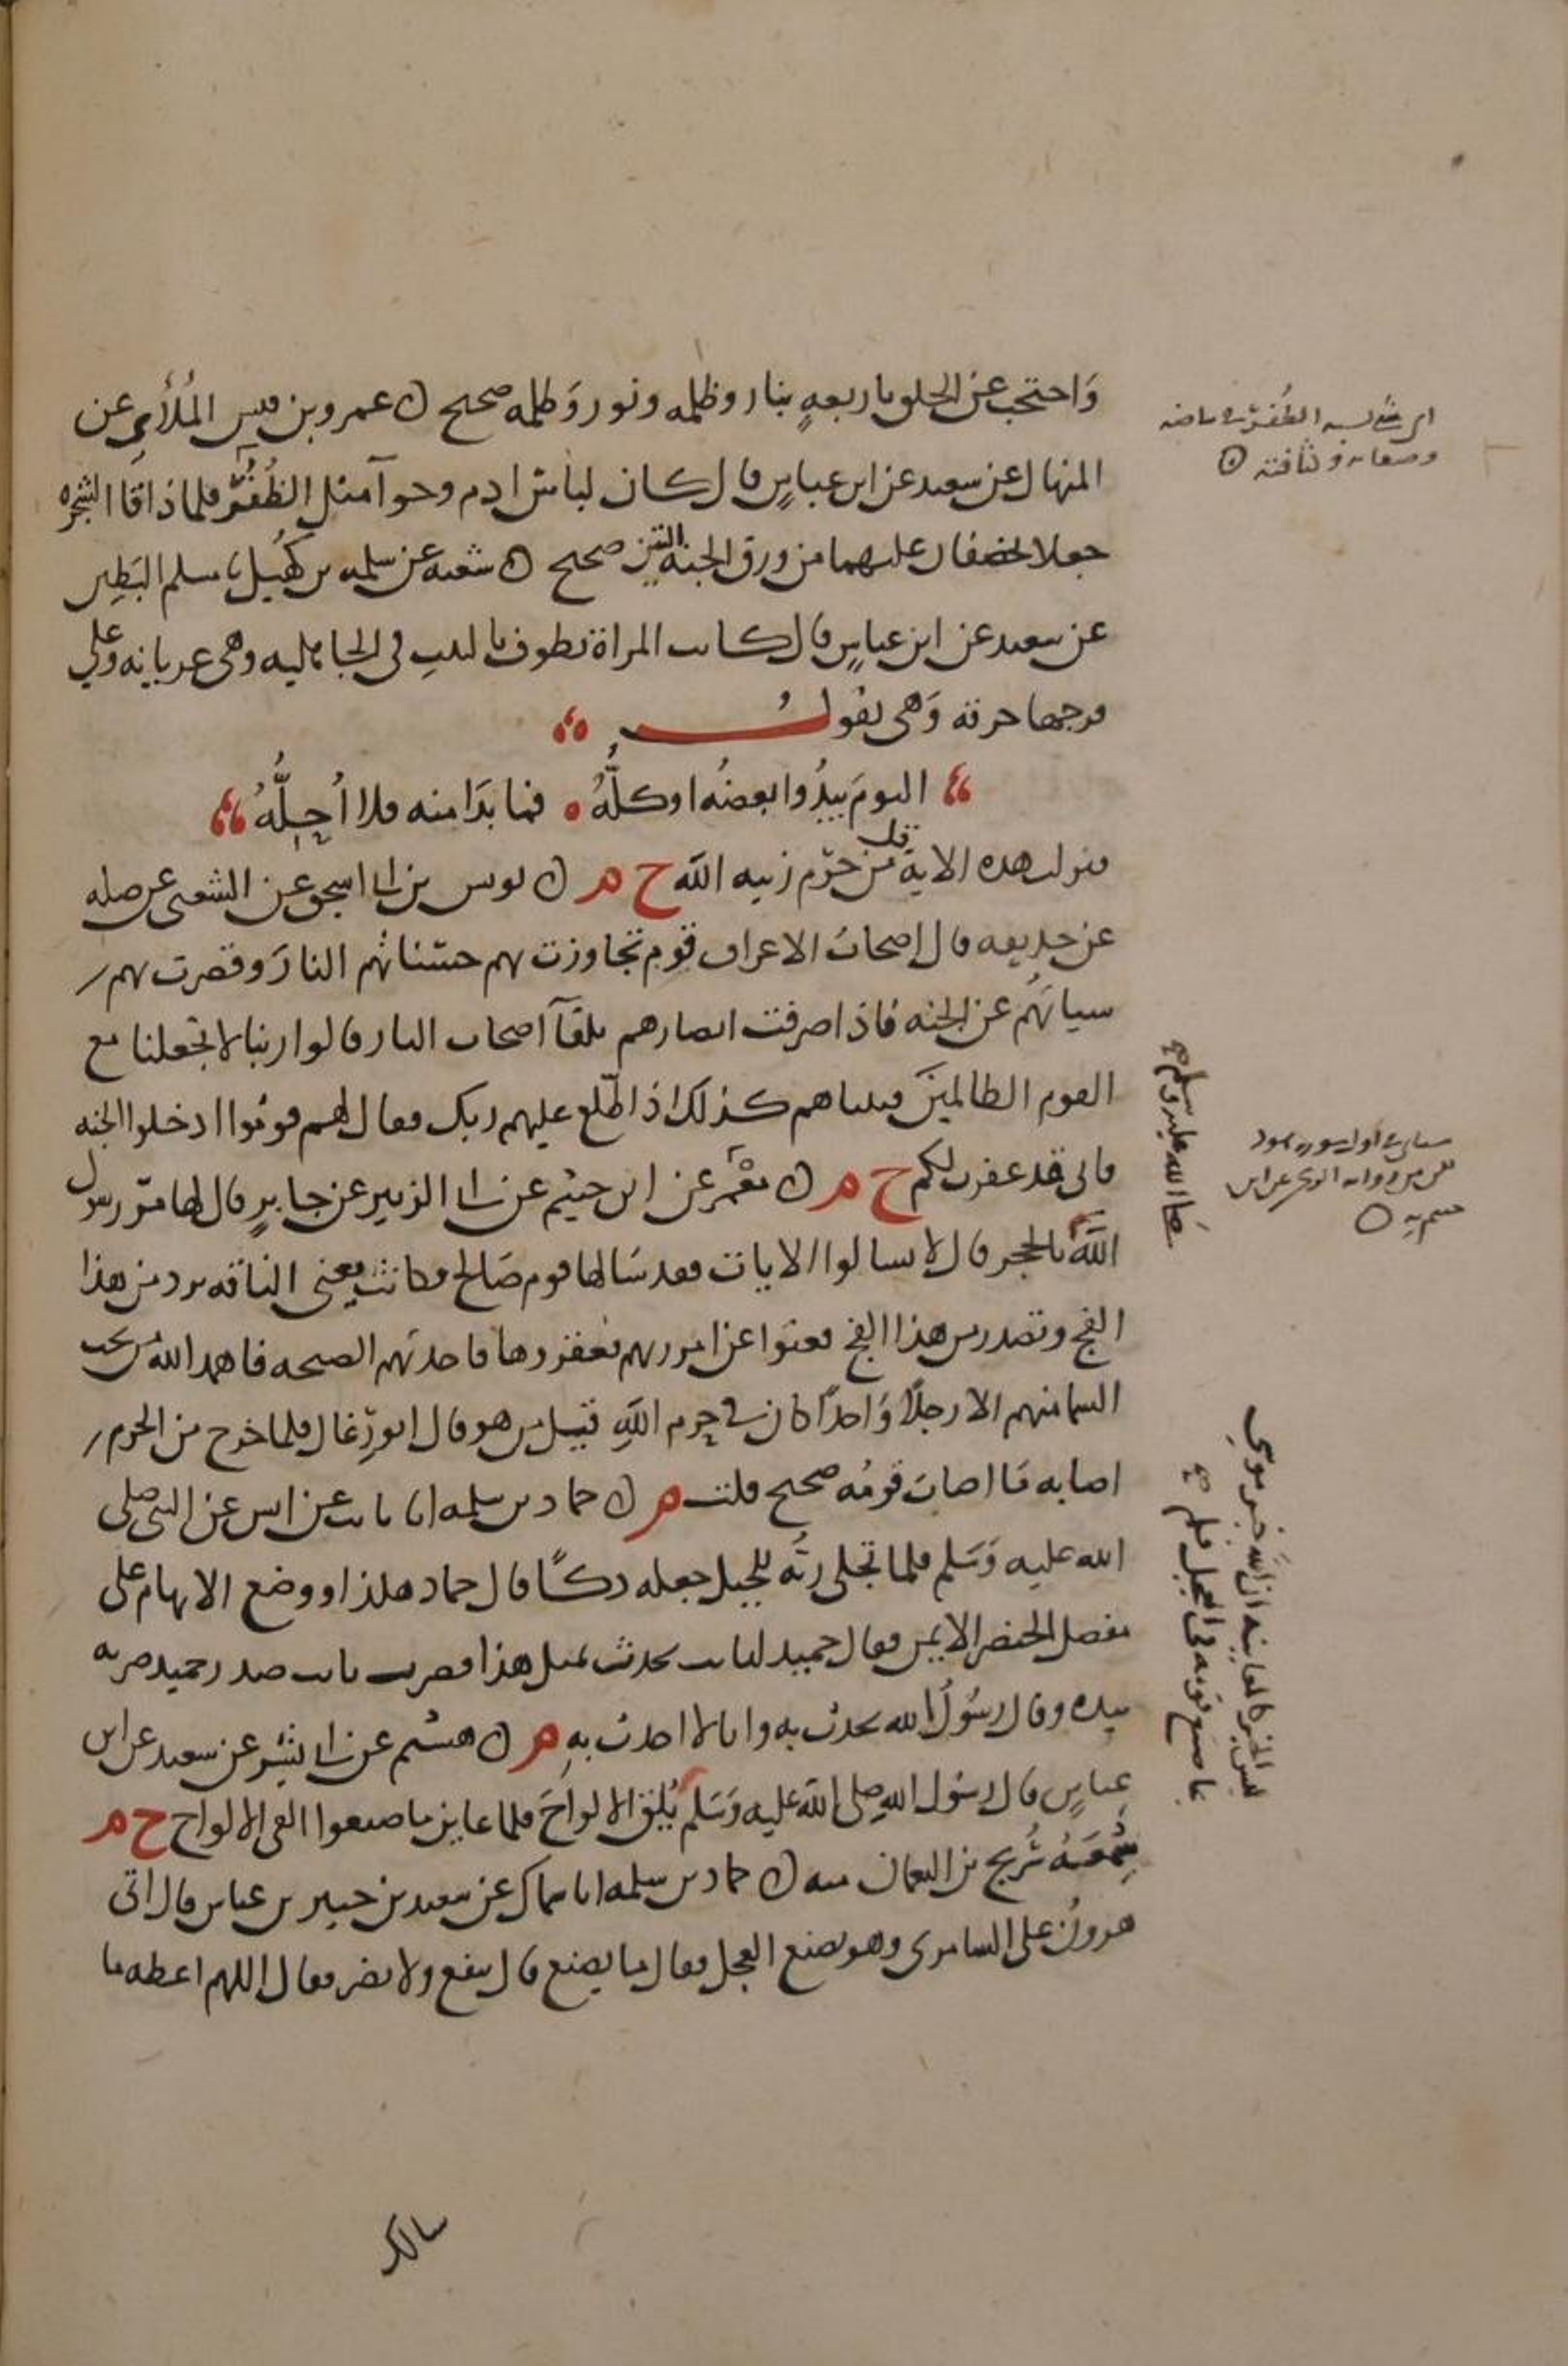 وَاحتجب عن الخلق باربعهٍ بنار وظلمه ونور وَظلمه صحيح ں عمرو بن قيس المُلائي عن
المنهال عن سعيد عن ابن عباسٍ قال كان لباسُ ادم وحوآ مثل الظُفُرُ فلما ذاقا الشجره
جعلا يخصفان عليهما من ورق الجنه التين صحيح ں شعبه عن سلمه بن كُهَيل نا مسلم البَطِين
عن سعيد عن ابن عباسٍ قال كانت المراة تطوف بالبيتِ في الجاهليه وهي عريانه وعلي
فرجها خرقه وَهي تقولُ
اليومَ يبدُوا بعضُه او كلُّهُ فما بدَا منه فلا اُحِلُّهُ
فنزلت هذه الاية قل من حرّم زينه الله خ م ں يونس بن ابي اسحق عن الشعبي عن صله
عن حذيفه قال اصحابُ الاعراف قوم تجاوزت بهم حسَناتُهم النارَ وقصرت بهم
سياتُهم عن الجنه فاذا صرفت ابصارهم تلقآ اصحاب النار قالوا ربنا لا تجعلنا مع
القوم الظالمينَ فبينا هم كذلك اذ اطّلع عليهم ربك فقال لهم قومُوا ادخلوا الجنه
فاني قد غفرت لكم خ م ں معْمَر عن ابن خثيم عن ابي الزبير عن جابرٍ قال لما مرّ رسول
الله بالحجر قال لا تسالوا الايات فقد سَالها قوم صَالح فكانت يعني الناقه ترد من هذا
الفج وتصدر من هذا الفج فعتوا عن امر ربهم فعقروها فاخذتهم الصيحه فاهمد اللهُ مَن تحت
السما منهم الا رجلًا وَاحدًا كان في حرم اللهِ قيل من هو قال ابو رِغال فلما خرج من الحرم
اصابه مَا اصابَ قومُه صحيح قلت م ں حماد بن سلمه انا ثابت عن انس عن النبي صلى
الله عليه وَسَلم فلما تجلى ربُّه للجبل جعله دكًّا قال حماد هكذا ووضع الابهام على
مفصل الخنصر الايمن فقال حميد لثابت تحدث بمثل هذا فضرب ثابت صدر حميد ضربه
بيده وقال رسُولُ الله يحدث به وانا لا احدث بهِ م ں هشيم عن ابي بِشْر عن سعيد عن ابن
عباسٍ قال رسُول الله صلى الله عليه وَسَلم يُلقِ الالواحَ فلما عاين ما صنعوا القى الالواح خ م
سَمِعَهُ سُرَيج بن النعمان منه ں حماد بن سلمه انا سماك عن سعيد بن جبير بن عباس قال اتى
هرونُ على السامري وهو يصنع العجل فقال ما يصنع قال ينفع ولا يضر فقال اللهم اعطه ما
الظُفُرَ في بياضه
وصفايه وكثافته
صَلى الله عليه وسلم صح
سياتي اول سوره هود
ليس الخبر كالمعاينه ان الله خبر موسى
بما صنع قومه في العجل فلم صح
سالك